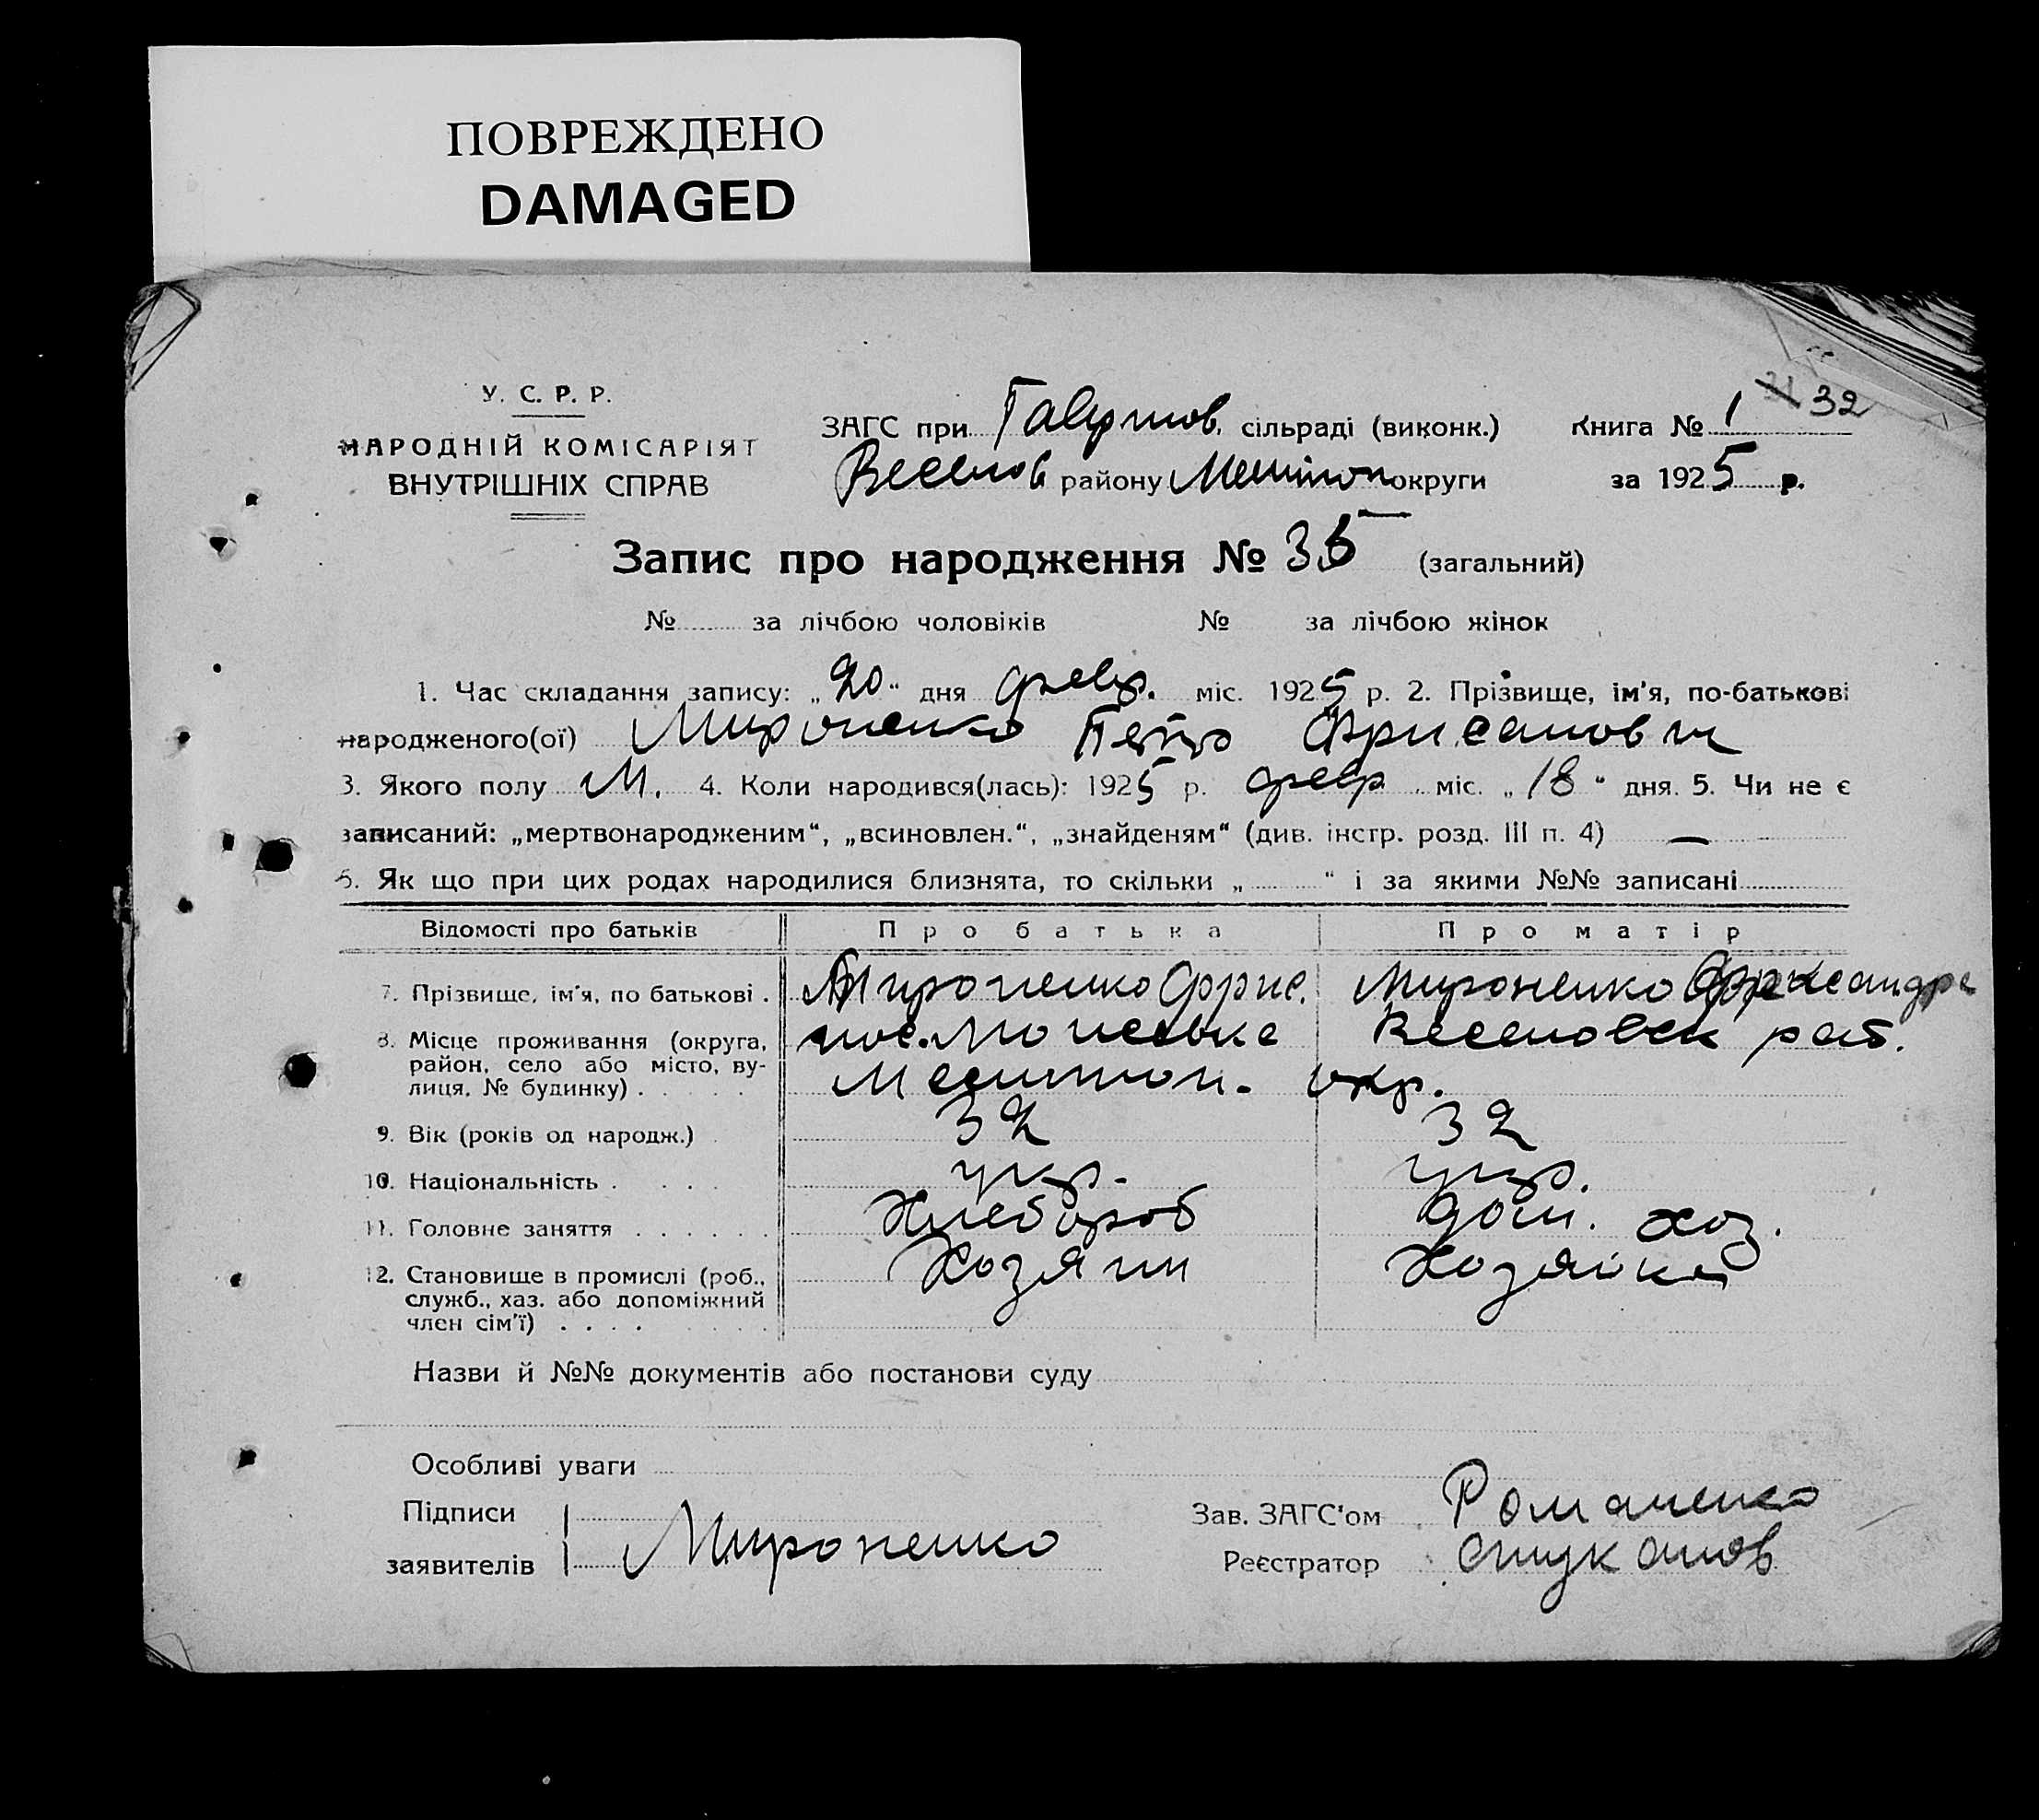 ПОВРЕЖДЕНО
DAMAGED
32
У. С. Р. Р.
НАРОДНІЙ КОМІСАРІЯТ
ВНУТРІШНІХ СПРАВ
ЗАГС при сільраді (виконк.) Книга № 1
Веселов району Мелитоп округи за 1925 р.
Запис про народження № 35 (загальний)
№ за лічбою чоловіків № за лічбою жінок
1. Час складання запису: „20“ дня февр. міс. 1925 р. 2. Прізвище, ім'я, по-батькові
народженого(ої) Мироненко Петро
3. Якого полу М. 4. Коли народився(лась): 1925 р. февр міс. „18“ дня. 5. Чи не є
записаний: „мертвонародженим“, „всиновлен.“, „знайденям“ (див. інстр. розд. III п. 4) —
6. Як що при цих родах народилися близнята, то скільки „ “ і за якими №№ записані
Відомості про батьків Про батька Про матір
7. Прізвище, ім'я, по батькові . Мироненко Мироненко
8. Місце проживання (округа, район, село або місто, вулиця, № будинку) . . . . . пос. Веселовск
Мелитоп. окр.
9. Вік (років од народж.) . 32 32
10. Національність . . . . укр. укр.
11. Головне заняття . . . . . . Хлебороб дом. хоз.
12. Становище в промислі (роб., Хозяин Хозяйка
служб., хаз. або допоміжний
член сім'ї) . . . .
Назви й №№ документів або постанови суду
Особливі уваги
Підписи Зав. ЗАГС'ом Романенко
заявителів Мироненко Реєстратор